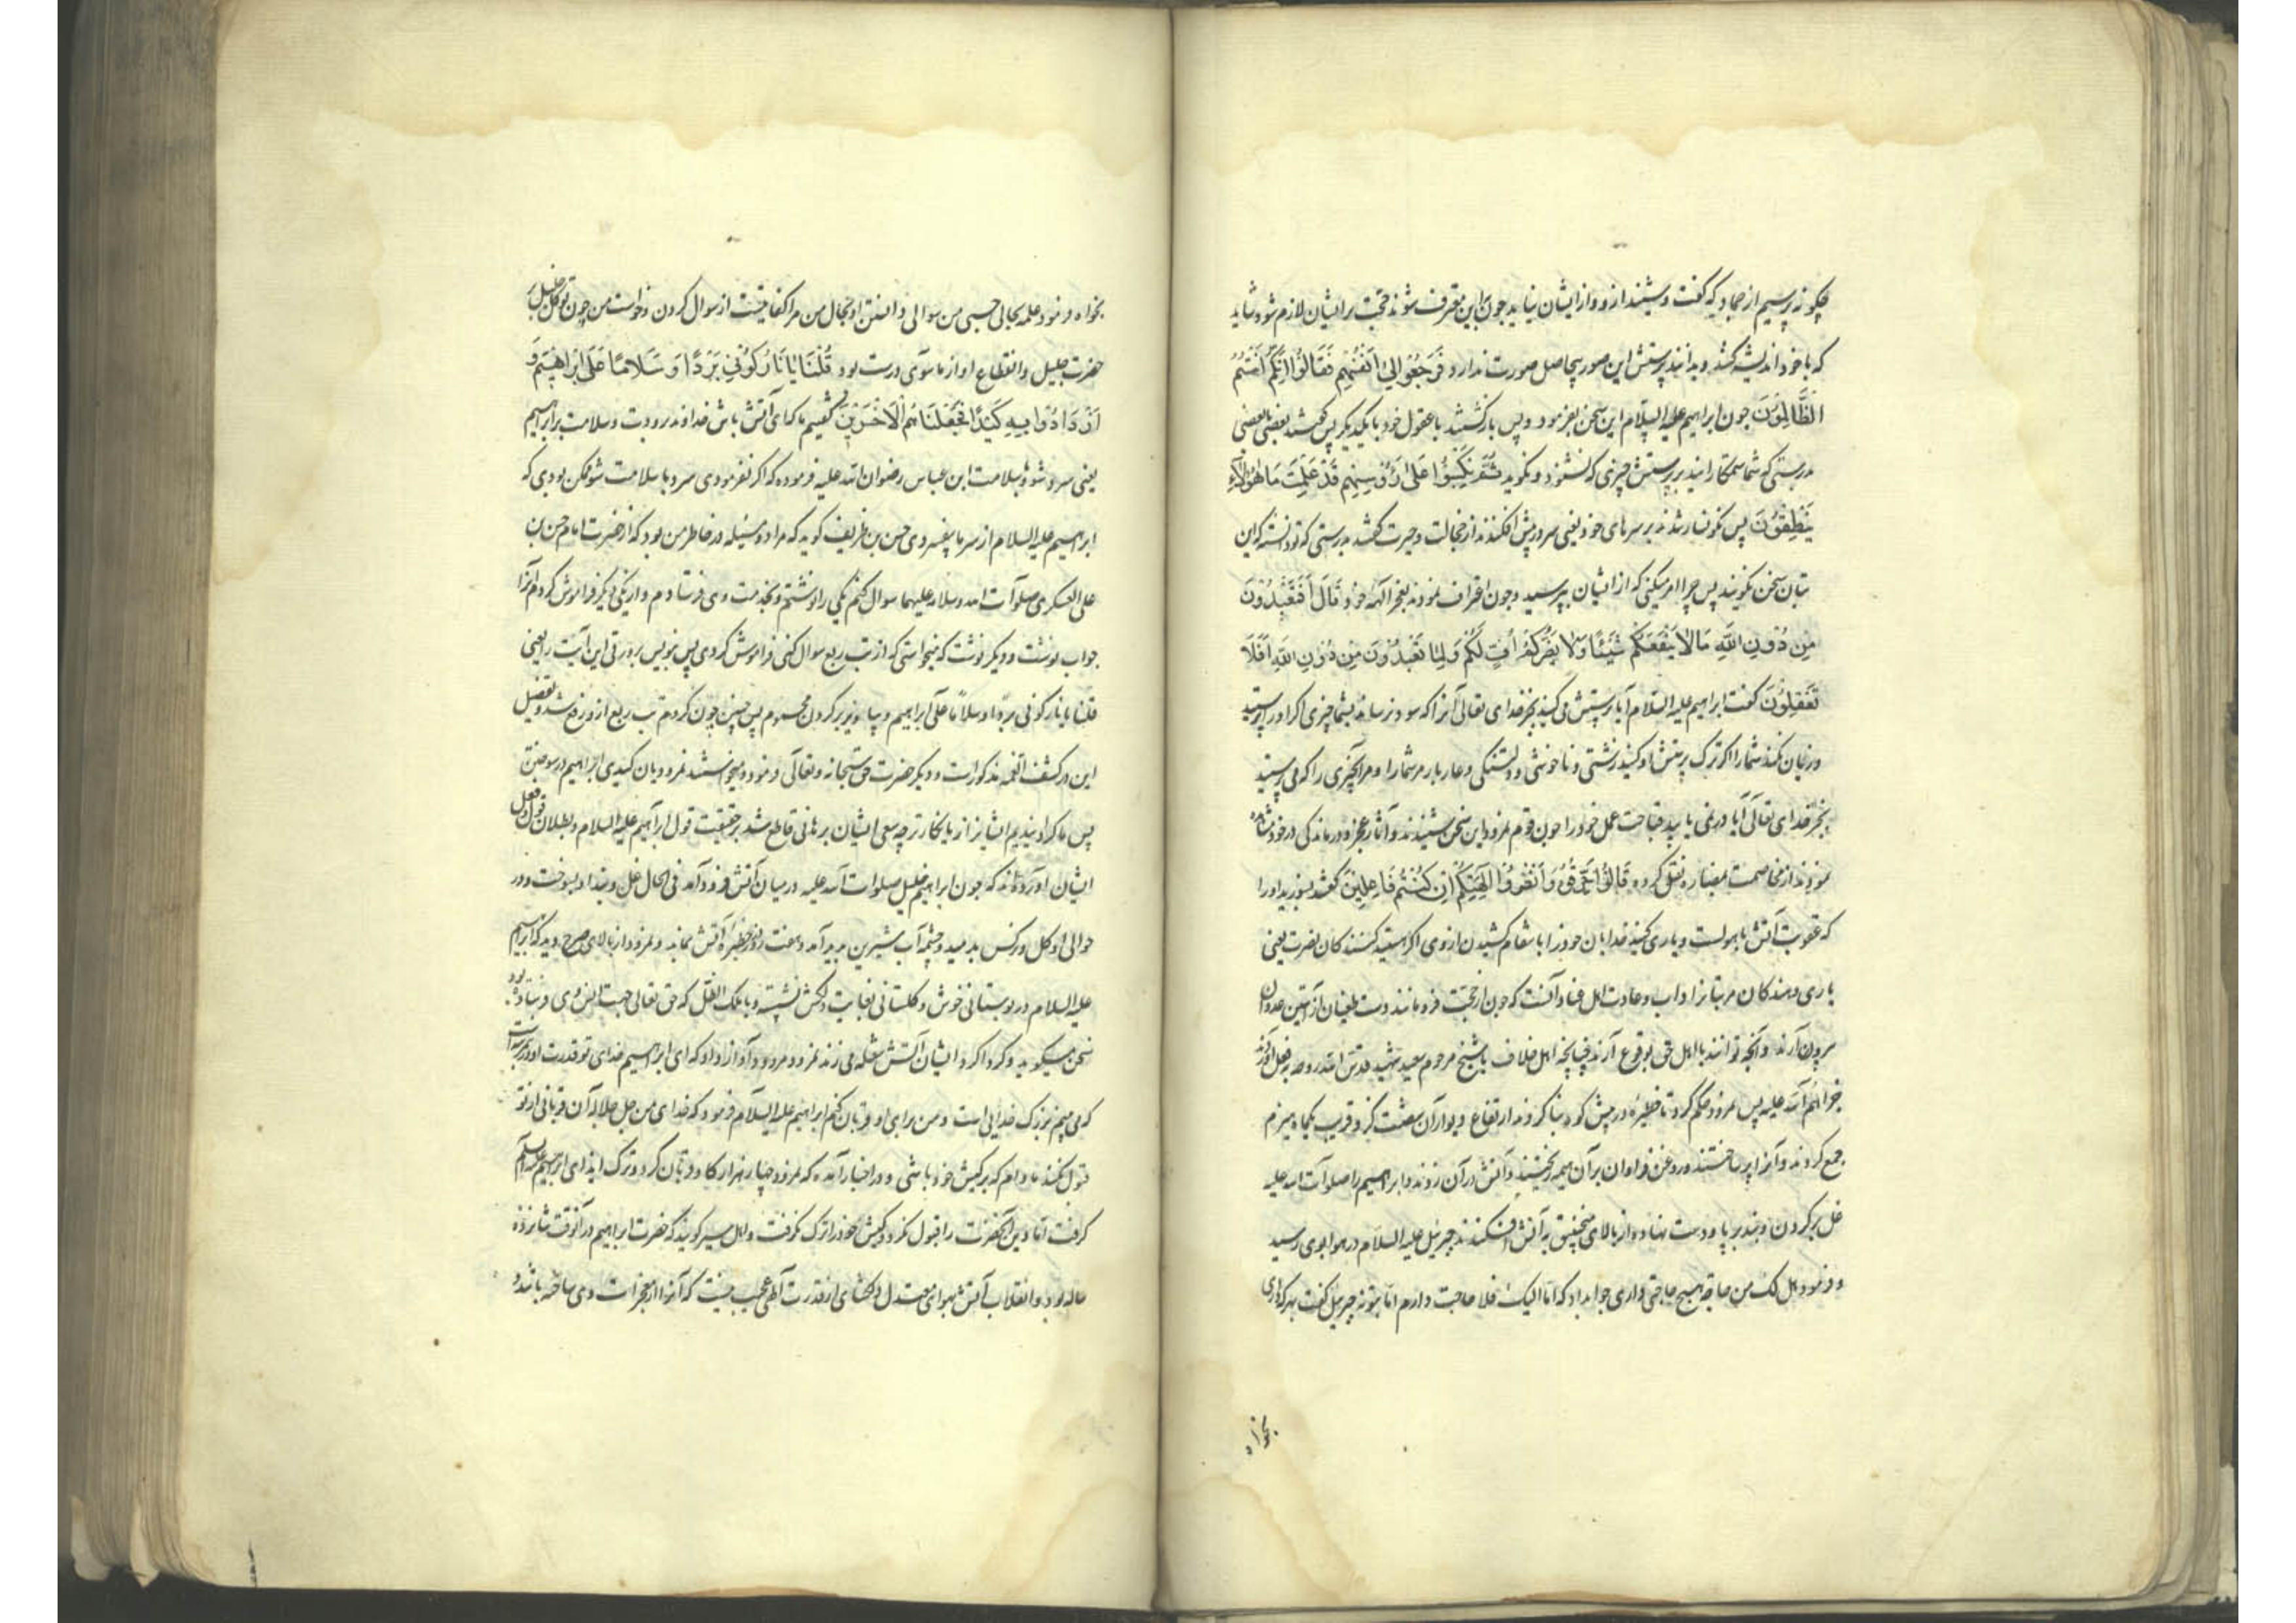 چکونه پرسیم از جمادیکه کفت و شنید از و و از ایشان نیاید جون باین معترف شوند حجّت بر ایشان لازم شود شاید
که با خود اندیشه کنند و بدانند پرستش این صور بیحاصل صورت ندارد فَرَجَعُوا اِلیٰ اَنفُسِهِم فَقَالُوا اِنَّکُم اَنتُم
الظَّالِمُونَ جون ابراهیم علیه السلام این سخن بفرمود و پس بازکشتند با عقول خود با یکدیکر پس کفتند بعضی بابعضی
بدرستی که شما ستمکارانید بر پرستش چیزی که نشنود و نکوید ثُمَّ نُکِسُوا عَلیٰ رُؤُسِهِم لَقَد عَلِمتَ مَا هٰؤُلاءِ
یَنطِقُونَ پس نکونسار شدند بر سرهای خود یعنی سر در پیش افکندند از خجالت و حیرت کفتند بدرستی که تو دانسته که این
بتان سخن نکویند پس چرا امر میکنی که از ایشان بپرسید و جون اعتراف نمودند بعجز آلهه خود قَالَ اَفَتَعبُدُونَ
مِن دُونِ اللهِ مَا لَا یَنفَعُکُم شَیئًا وَلَا یَضُرُّکُم اُفٍّ لَکُم وَلِمَا تَعبُدُونَ مِن دُونِ اللهِ اَفَلَا
تَعقِلُونَ کفت ابراهیم علیه السلام آیا پرستش می کنید بجز خدای تعالی آنرا که سود نرساند بشما چیزی اکر اورا پرستید
و زیان نکند شما را اکر ترک پرستش او کنید زشتی و ناخوشی و دلتنکی و عار بار مر شما را و مر آنچیزی را که می پرستید
بجز خدای تعالی آیا در نمی یابید قباحت عمل خود را جون قوم نمرود این سخن شنیدند و آثار عجز و درماندکی در خود مشاهده
نمودند از مخاصمت بمضاره نقل کرده قَالُوا حَرِّقُوهُ وَانصُرُوا اٰلِهَتَکُم اِن کُنتُم فَاعِلِینَ کفتند بسوزید اورا
که عقوبت آتش باهولست و یاری کنید خدایان خود را با نتقام کشیدن از وی اکر هستید کنندکان نصرت یعنی
یاری دهندکان مر بتانرا و داب و عادت اهل عناد آنست که جون از حجّت فرو مانند دست طغیان از آستین عدوان
بیرون آرند و آنچه توانند با اهل حق بوقوع آرند چنانچه اهل خلاف با شیخ مرحوم سعید شهید قدس الله روحه بفعل آوردند
جزاهم الله علیه پس نمرود حکم کرد تا حظیره در پیش کوه بنا کردند ارتفاع دیوار آن شصت کز و قریب یکماه هیزم
جمع کردند و آنرا پر ساختند و روغن فراوان بر آن هیمه ریختند و آتش در آن زدند و ابراهیم را صلوات الله علیه
غل بر کردن و بند بر پا و دست نهاده از بالای منجنیق به آتش افکندند جبرئیل علیه السلام در هوا بوی رسید
و فرمود هل لک من حاجة هیچ حاجتی داری جوابداد که امّا الیک فلا حاجت دارم امّا بتو نه جبرئیل کفت بهر که داری
بخواه
بخواه فرمود علمه بحالی حسبی من سوالی دانستن او بحال من مرا کفایتست از سوال کردن و خواست من چون توکل خلیل بر
حضرت جلیل و انقطاع او از ماسوی درست بود قُلنَا یَا نَارُ کُونِی بَردًا وَ سَلَامًا عَلیٰ اِبرَاهِیمَ وَ
اَرَادُوا بِهِ کَیدًا فَجَعَلنَاهُمُ الاَخسَرِینَ کفتیم ما که ای آتش باش خداوند برودت و سلامت بر ابراهیم
یعنی سرد شو و با سلامت ابن عباس رضوان الله علیه فرموده که اکر نفرمودی سرد با سلامت شو ممکن بودی که
ابراهیم علیه السلام از سرما بیفسردی حسن بن ظریف کوید که مرا دو مسئله در خاطر من بود که از حضرت امام حسن بن
علی العسکری صلوات الله و سلامه علیهما سوال کنم یکی را نوشتم و بخدمت وی فرستادم و از یکی دیکر فراموش کردم آنرا
جواب نوشت و دیکر نوشت که میخواستی که از تب ربع سوال کنی فراموش کردی پس بنویس بر ورقی این آیت را یعنی
قلنا یا نار کونی بردا و سلاماً علی ابراهیم و بیاویز بر کردن محموم پس چنین چون کردم تب ربع ازو رفع شد و تفصیل
این در کشف الغمه مذکور است و دیکر حضرت حق سبحانه و تعالی فرموده میخواستند نمرودیان کیدی ابراهیم در سوختن
پس ما کردانیدیم ایشانرا زیانکارتر چه سعی ایشان برهانی قاطع شد بر حقیقت قول ابراهیم علیه السلام و بطلان قول و فعل
ایشان آورده‌اند که جون ابراهیم خلیل صلوات الله علیه در میان آتش فرود آمد فی الحال غل و بند او بسوخت و در
حوالی او کل و نرکس بدمید و چشمه آب شیرین بدید آمد و هفت روز در حظیره آتش بماند و نمرود از بالای صرح دید که ابراهیم
علیه السلام در بوستانی خوش و کلستانی بغایت دلکش نشسته و با ملک الظل که حق تعالی جهت انس وی فرستاده بود
سخن میکوید و کرداکرد ایشان آتش شعله می زند نمرود مردود آواز داد که ای ابراهیم خدای تو قدرت او در مرتبه ایست
که می بینم بزرک خدایی است و من برای او قربان کنم ابراهیم علیه السلام فرمود که خدای من جل جلاله آن قربانی از تو
قبول نکند مادام که بر کیش خود باشی و در اخبار آمده که نمرود چهار هزار کاو قربان کرد و ترک ایذای ابراهیم علیه السلام
کرفت امّا دین آنحضرت را قبول نکرد و کیش خود را ترک نکرفت و اهل سیر کویند که حضرت ابراهیم در آنوقت شانزده
ساله بود و انقلاب آتش بهوای معتدل دلکشای از قدرت آلهی عجیب نیست که آنرا از معجزات وی ساخته باشد و